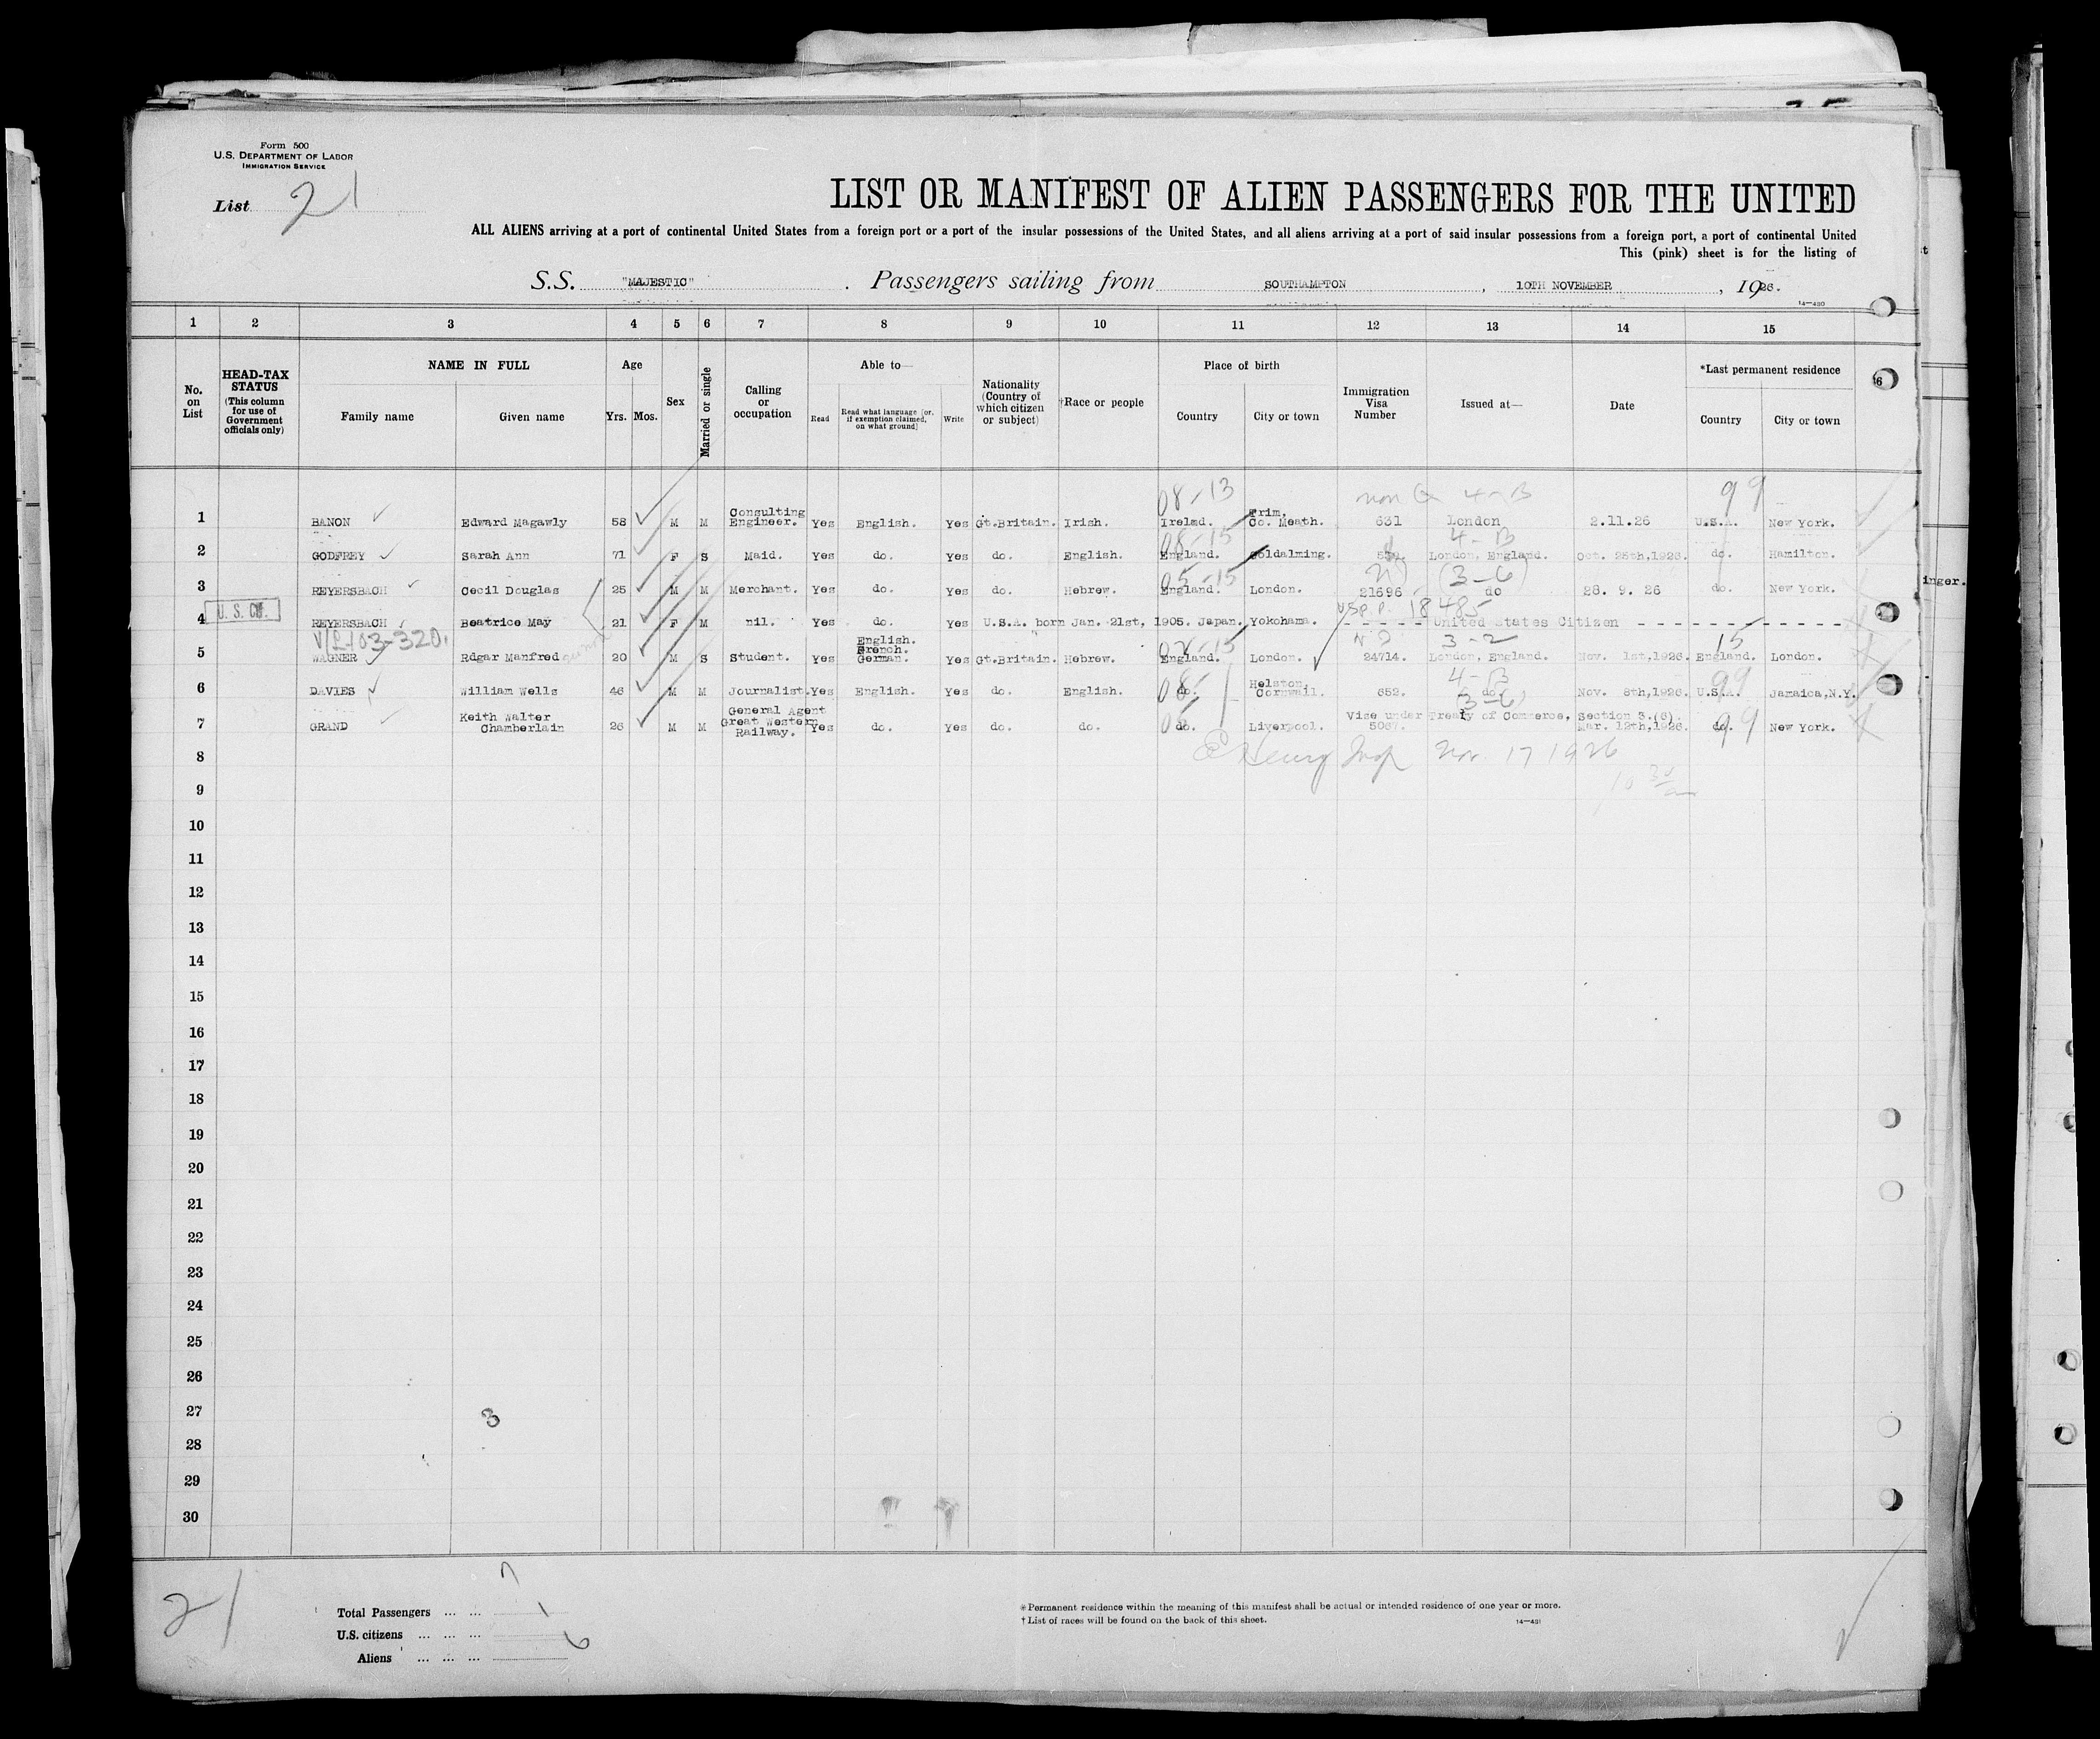 Form 500
U.S. DEPARTMENT OF LABOR
IMMIGRATION SERVICE
List 21
LIST OR MANIFEST OF ALIEN PASSENGERS FOR THE UNITED
ALL ALIENS arriving at a port of continental United States from a foreign port or a port of the insular possessions of the United States, and all aliens arriving at a port of said insular possessions from a foreign port, a port of continental United
This (pink) sheet is for the listing of
S.S. "MAJESTIC" . Passengers sailing from SOUTHAMPTON , 10TH NOVEMBER , 1926.
14—420
1 2 3 4 5 6 7 8 9 10 11 12 13 14 15
No. on List
HEAD-TAX STATUS (This column for use of Government officials only)
NAME IN FULL
Family name Given name
Age
Yrs. Mos.
Sex
Married or single
Calling or occupation
Able to—
Read Read what language [or, if exemption claimed, on what ground] Write
Nationality (Country of which citizen or subject)
†Race or people
Place of birth
Country City or town
Immigration Visa Number
Issued at—
Date
*Last permanent residence
Country City or town
08-13 non Q 4-B 99
1 BANON Edward Magawly 58 M M Consulting Engineer. Yes English. Yes Gt.Britain. Irish. Irelnd. Trim, Co. Meath. 631 London 2.11.26 U.S.A. New York.
08-15 4-B
2 GODFREY Sarah Ann 71 F S Maid. Yes do. Yes do. English. England. Goldalming. London, England. Oct. 25th,1926. do. Hamilton.
05-15 (3-6)
3 REYERSBACH Cecil Douglas 25 M M Merchant. Yes do. Yes do. Hebrew. England. London. 21696 do 28. 9. 26 do. New York.
U. S. CIT. 18485
4 REYERSBACH Beatrice May 21 F M nil. Yes do. Yes U.S.A. born Jan. 21st, 1905. Japan. Yokohama. - - - - - United States Citizen - - - - - - - - - - - -
V/L 103-320. 15 3-2 15
5 WAGNER Rdgar Manfred 20 M S Student. Yes English. French. German. Yes Gt.Britain. Hebrew. England. London. 24714. London, England. Nov. 1st,1926. England. London.
08 4-B 99
6 DAVIES William Wells 46 M M Journalist. Yes English. Yes do. English. do. Helston, Cornwall. 652. do. Nov. 8th,1926. U.S.A. Jamaica,N.Y.
08 (3-6) 99
7 GRAND Keith Walter Chamberlain 26 M M General Agent Great Western Railway. Yes do. Yes do. do. do. Liverpool. Vise under Treaty of Commerce, Section 3.(6). 5067. Mar. 12th,1926. do. New York.
Henry Insp Nov. 17 1926
8
9
10
11
12
13
14
15
16
17
18
19
20
21
22
23
24
25
26
27 3
28
29
30
21
7
Total Passengers ... ... 1
U.S. citizens ... ... ... 6
Aliens ... ... ...
*Permanent residence within the meaning of this manifest shall be actual or intended residence of one year or more.
†List of races will be found on the back of this sheet.
14—421